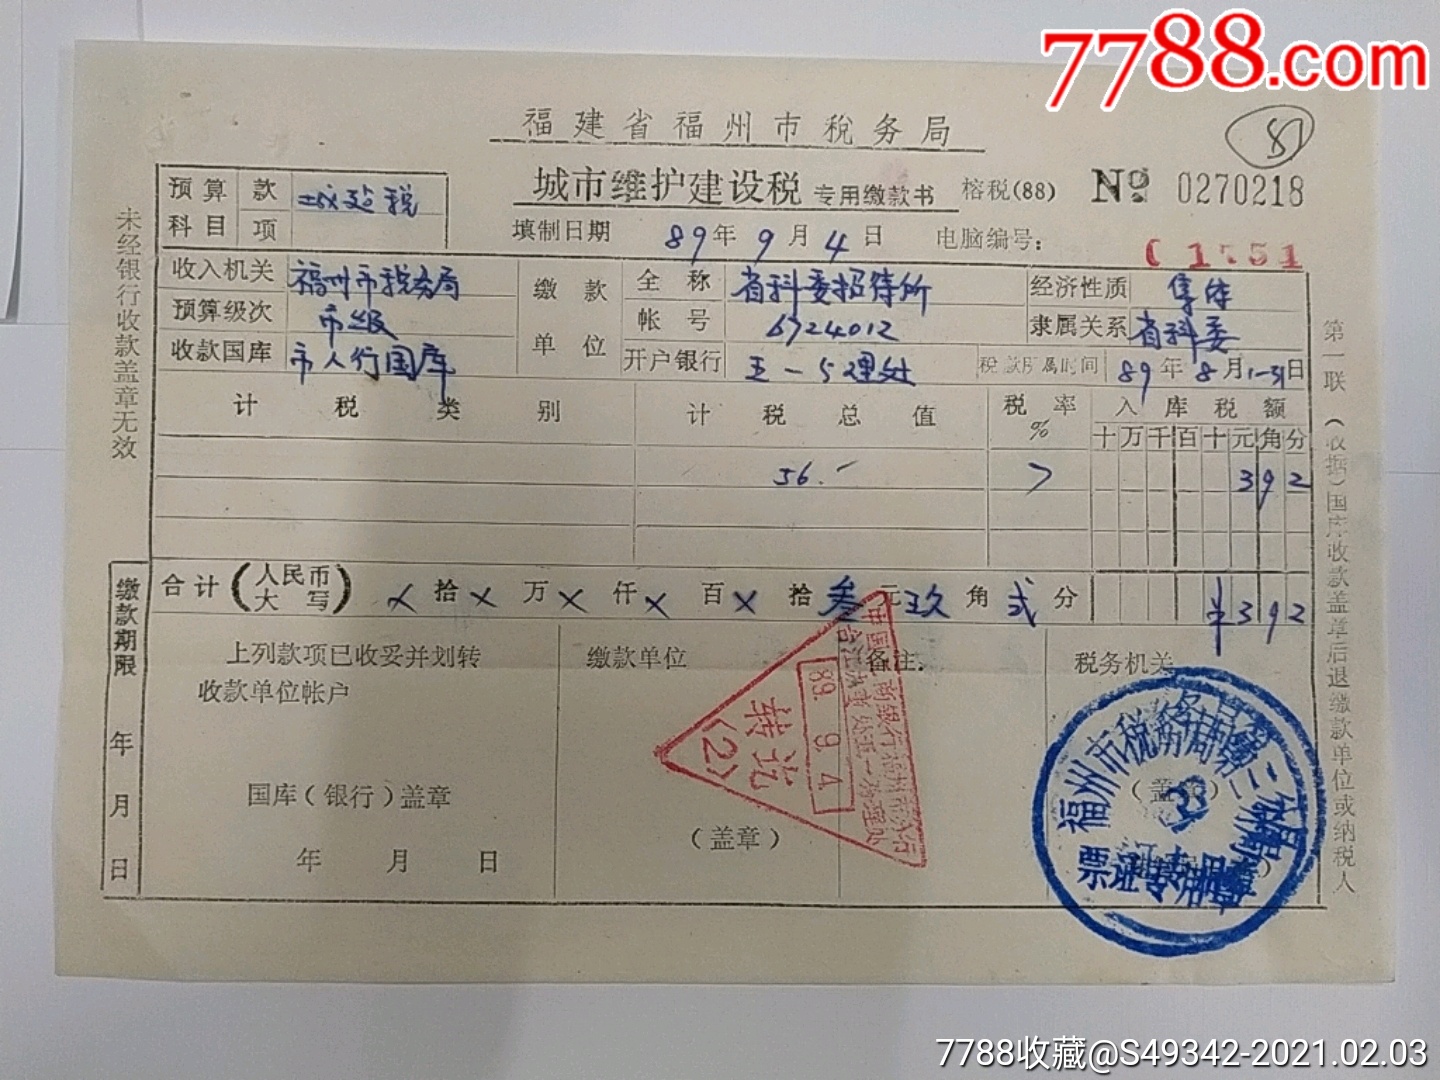 7788.com
福建省福州市税务局
81
城市维护建设税 专用缴款书 榕税(88) № 0270218
预算科目 款 项
填制日期 89年9月4日 电脑编号:
收入机关 福州市税务局
预算级次 市级
收款国库 市人行国库
缴款单位 全称 省科委招待所
帐号 6724012
开户银行 五一分理处
经济性质 集体
隶属关系 省科委
税款所属时间 89年8月1-31日
计税类别 计税总值 税率% 入库税额
十万千百十元角分
56.- 7 3 9 2
合计(人民币大写) ㄨ拾ㄨ万ㄨ仟ㄨ百ㄨ拾叁元玖角贰分 ¥3 9 2
缴款期限 年 月 日
上列款项已收妥并划转
收款单位帐户
国库(银行)盖章
年 月 日
缴款单位
(盖章)
备注:
税务机关
(盖章)
89. 9. 4
转讫
(2)
福州市税务局第二分局
3
票证专用章
未经银行收款盖章无效
第一联(收据)国库收款盖章后退缴款单位或纳税人
7788收藏@S49342-2021.02.03